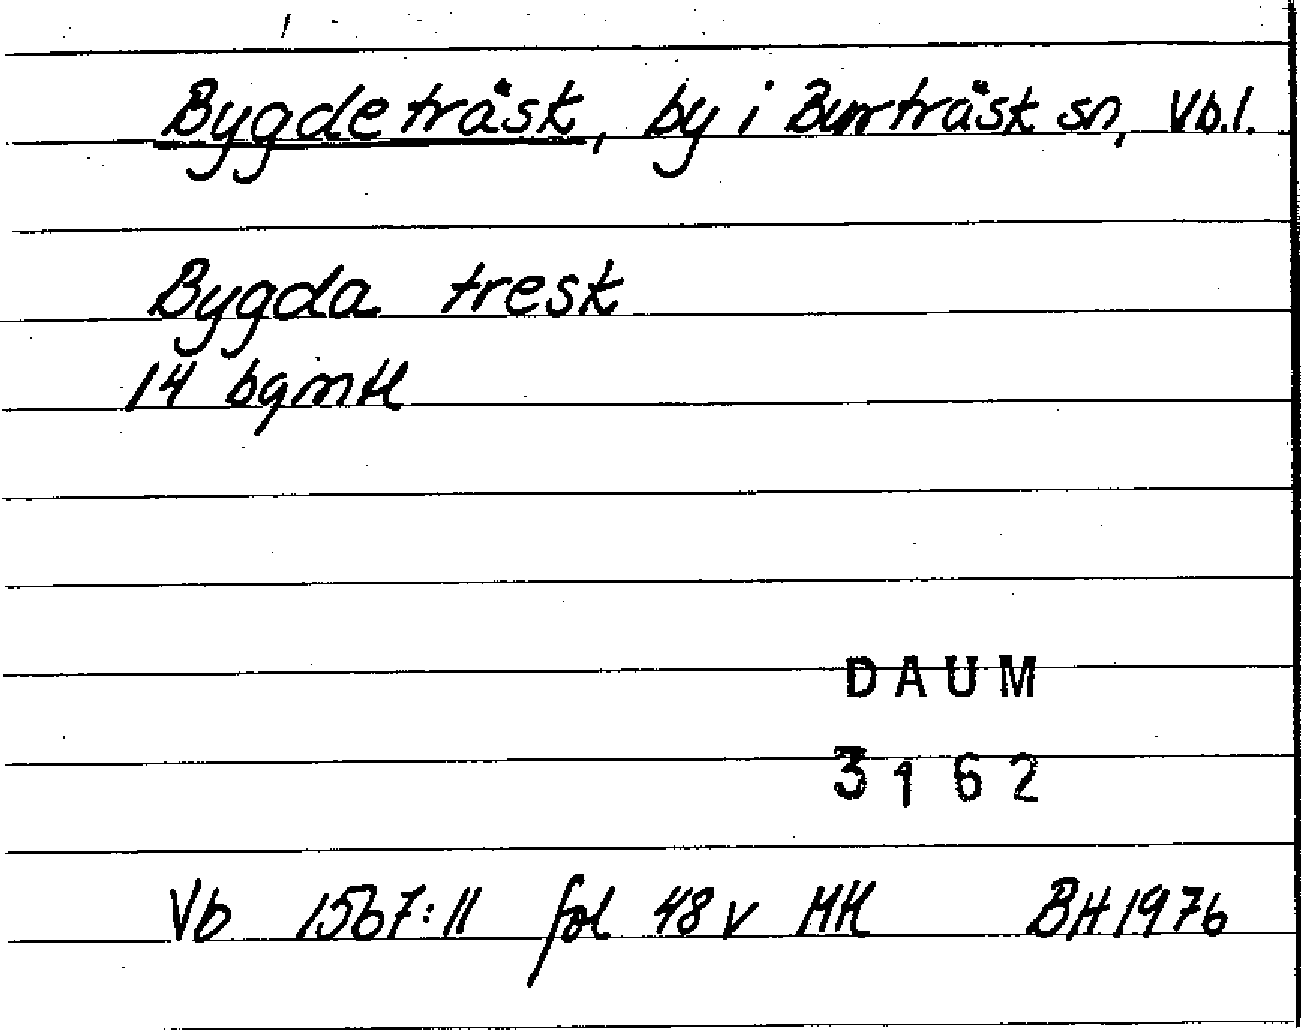 Bygdeträsk, by i Burträsk sn, Vb.l.
Bygda tresk
14 bgmtl
DAUM
3162
Vb 1567:11 fol 48 v MH BH 1976